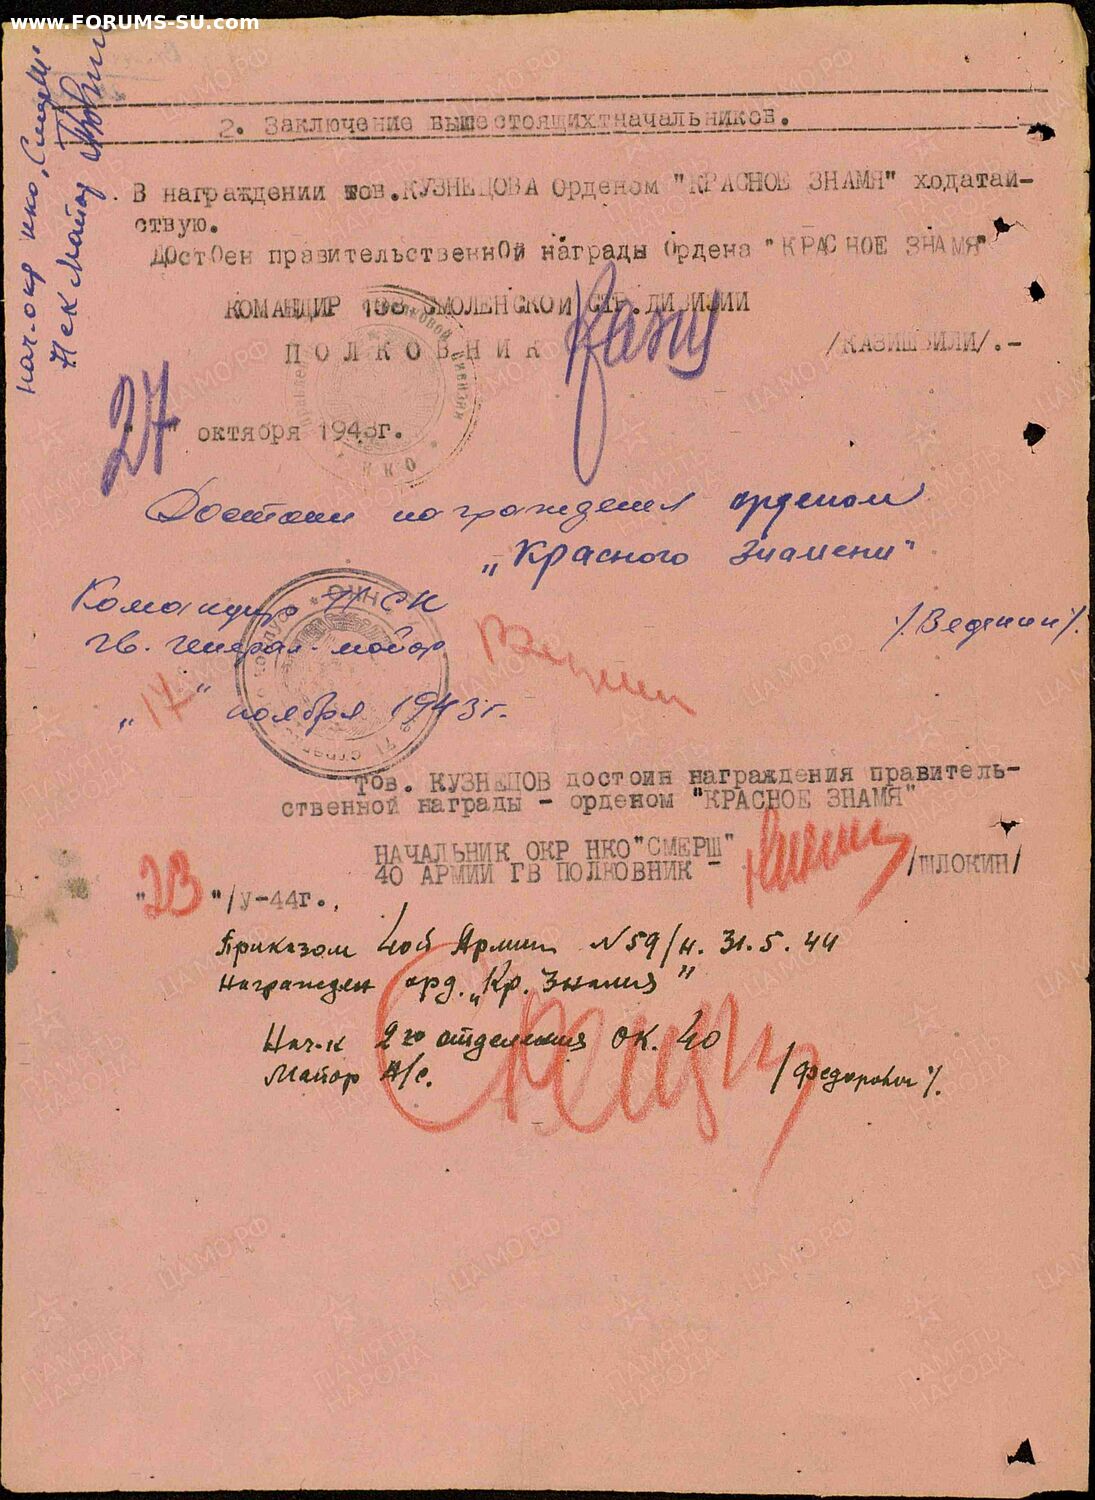 www.FORUMS-SU.com
нач. окр нко "Смерш"
майор
2. Заключение вышестоящихтначальников.
В награждении тов.КУЗНЕЦОВА Орденом "КРАСНОЕ ЗНАМЯ" ходатай-
ствую.
Достоен правительственной награды Ордена "КРАСНОЕ ЗНАМЯ"
КОМАНДИР СМОЛЕНСКОЙ СТР.ДИВИЗИИ
ПОЛКОВНИК /КАЗИШВИЛИ/.-
27" октября 1943г.
НКО
Достоин награждения орденом
"Красного Знамени"
Командир СК
гв. генерал-майор /Веденин/.
"17" ноября 1943г.
тов. КУЗНЕЦОВ достоин награждения правитель-
ственной награды - орденом "КРАСНОЕ ЗНАМЯ"
НАЧАЛЬНИК ОКР НКО"СМЕРШ"
40 АРМИИ ГВ ПОЛКОВНИК - /ШЛОКИН/
"23"/у-44г.,
Приказом 40й Армии №59/н. 31.5.44
Награжден орд. "Кр. Знамя"
Нач-к 2го отделения ОК. 40
Майор А/с. /Федорович/.